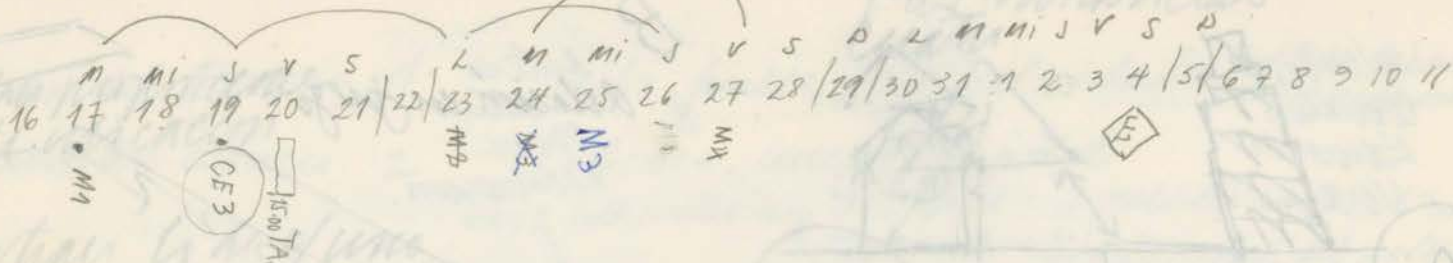 m mi J V S L m mi J V S D L m mi J V S D
16 17 18 19 20 21 / 22 / 23 24 25 26 27 28 / 29 / 30 31 1 2 3 4 / 5 / 6 7 8 9 10 11
• M1 • CE3 15.00 TA M3 M4 E